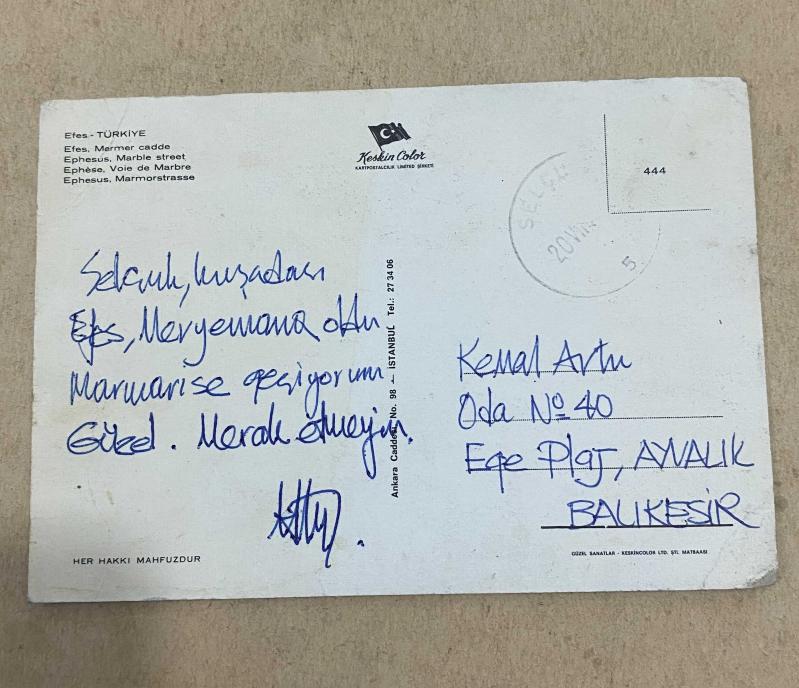 Efes - TÜRKİYE
Efes, Mermer cadde
Ephesus, Marble street
Ephèse, Voie de Marbre
Ephesus, Marmorstrasse
Keskin Color
KARTPOSTALCILIK LIMITED ŞİRKETİ
444
SELÇU
20 VII
5
Selçuk, kuşadası
Efes, Meryemana oldu
Marmarise geçiyorum
Güzel. Merak etmeyin.
Ankara Caddesi, No. 98 - İSTANBUL Tel.: 27 34 06
Kemal Artu
Oda No 40
Ege Plaj, AYVALIK
BALIKESİR
HER HAKKI MAHFUZDUR
GÜZEL SANATLAR - KESKİNCOLOR LTD. ŞTİ. MATBAASI